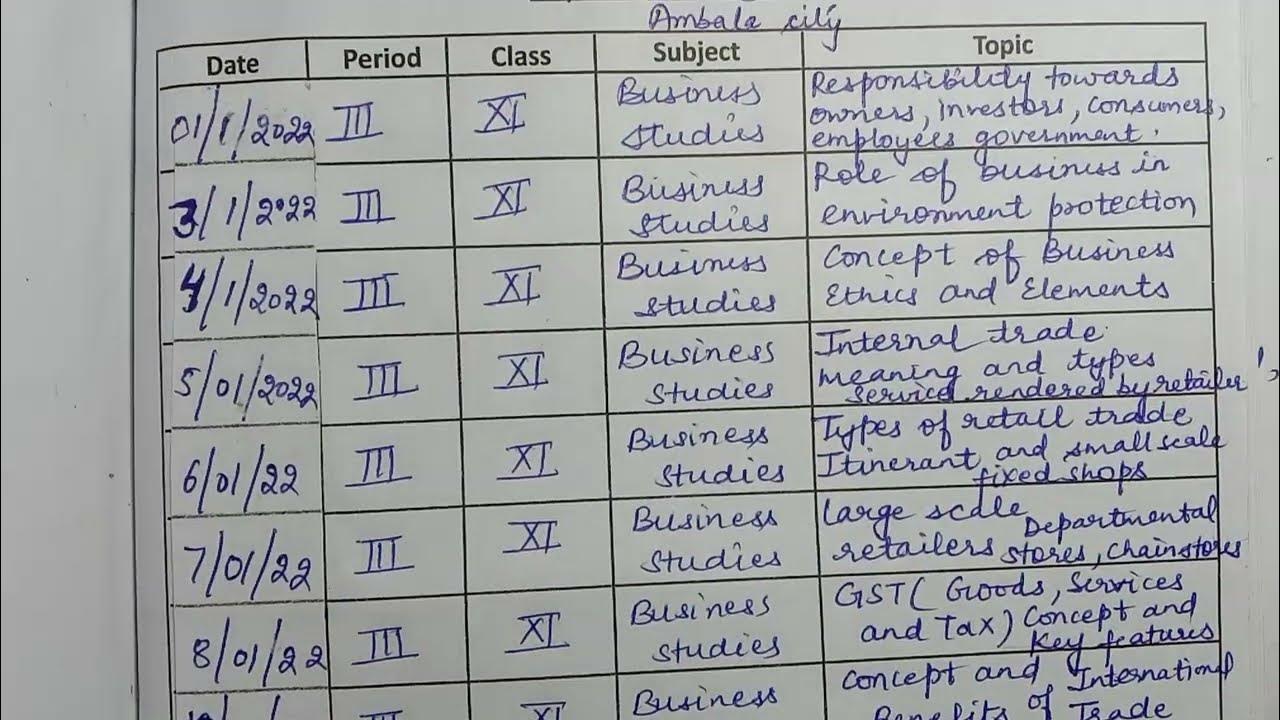 Ambala city
Date Period Class Subject Topic
01/1/2022 III XI Business Studies Responsibility towards owners, investors, consumers, employees government.
3/1/2022 III XI Business Studies Role of business in environment protection
4/1/2022 III XI Business Studies Concept of Business Ethics and Elements
5/01/2022 III XI Business Studies Internal trade meaning and types service rendered by retailer
6/01/22 III XI Business Studies Types of retail trade Itinerant and small scale fixed shops
7/01/22 III XI Business Studies large scale retailers Departmental stores, chain stores
8/01/22 III XI Business Studies GST( Goods, Services and Tax) Concept and Key features
III XI Business Concept and Benefits of International Trade